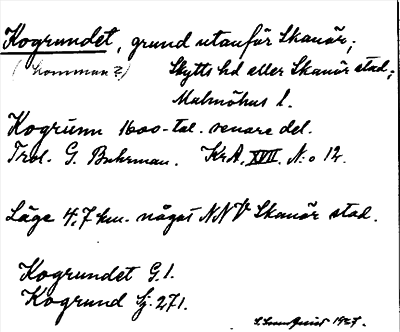 Kogrundet, grund utanför Skanör;
(kommun?) Skytts hd eller Skanör stad;
Malmöhus l.
Kogrunn 1600-tal. senare del.
Trol. G. Buhrman. KrA. XVII. N:o 12.
Läge 4,7 km. något NNV Skanör stad.
Kogrundet G.l.
Kogrund Sj. 271.
1927.